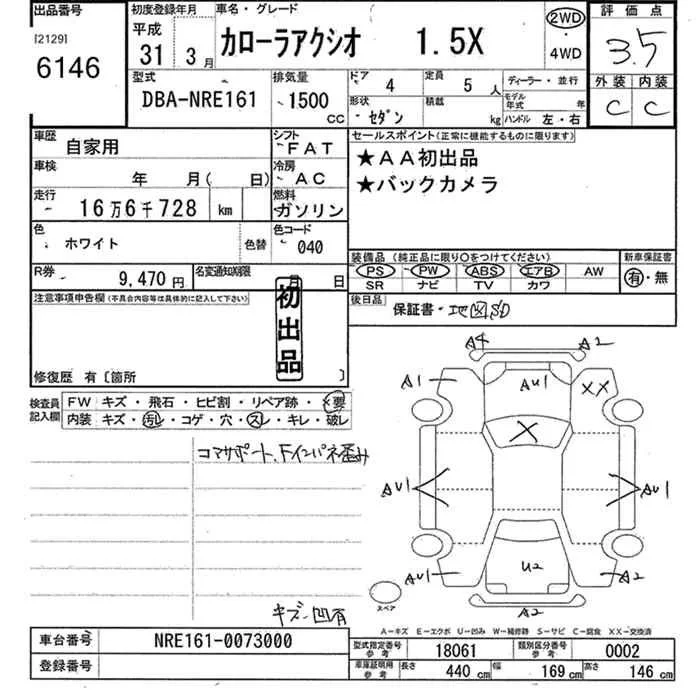 出品番号
[2129]
6146
初度登録年月
平成
31 3月
車名・グレード
カローラアクシオ 1.5X
2WD
・
4WD
評価点
3.5
外装 内装
C C
型式
DBA-NRE161
排気量
1500 CC
ドア 4
定員 5 人
形状 セダン
積載 kg
ディーラー・並行
モデル年式 年
ハンドル 左・右
車歴 自家用
シフト FAT
車検 年 月( 日)
冷房 AC
走行 16万6千728 km
燃料 ガソリン
色 ホワイト
色替
色コード 040
R券 9,470円
名変通知期限 月 日
セールスポイント(正常に機能するものに限ります)
★AA初出品
★バックカメラ
装備品(純正品に限り○をつけてください)
PS PW ABS エアB AW
SR ナビ TV カワ
新車保証書
有・無
後日品 保証書・地図SD
注意事項申告欄(不具合内容等は具体的に記入して下さい)
初出品
修復歴 有〔箇所 〕
検査員記入欄
FW キズ・飛石・ヒビ割・リペア跡・×要
内装 キズ・汚レ・コゲ・穴・スレ・キレ・破レ
コアサポート、Fインパネ歪み
キズ・凹有
A4 A2
A1 AU1 XX
X
AU1 AU1
AU1 U2 A2
スペア
A2
A-キズ E-エクボ U-凹み W-補修跡 S-サビ C-腐食 XX-交換済
車台番号 NRE161-0073000
登録番号
型式指定番号参考 18061
類別区分番号参考 0002
車庫証明用参考 長さ 440 cm 幅 169 cm 高さ 146 cm